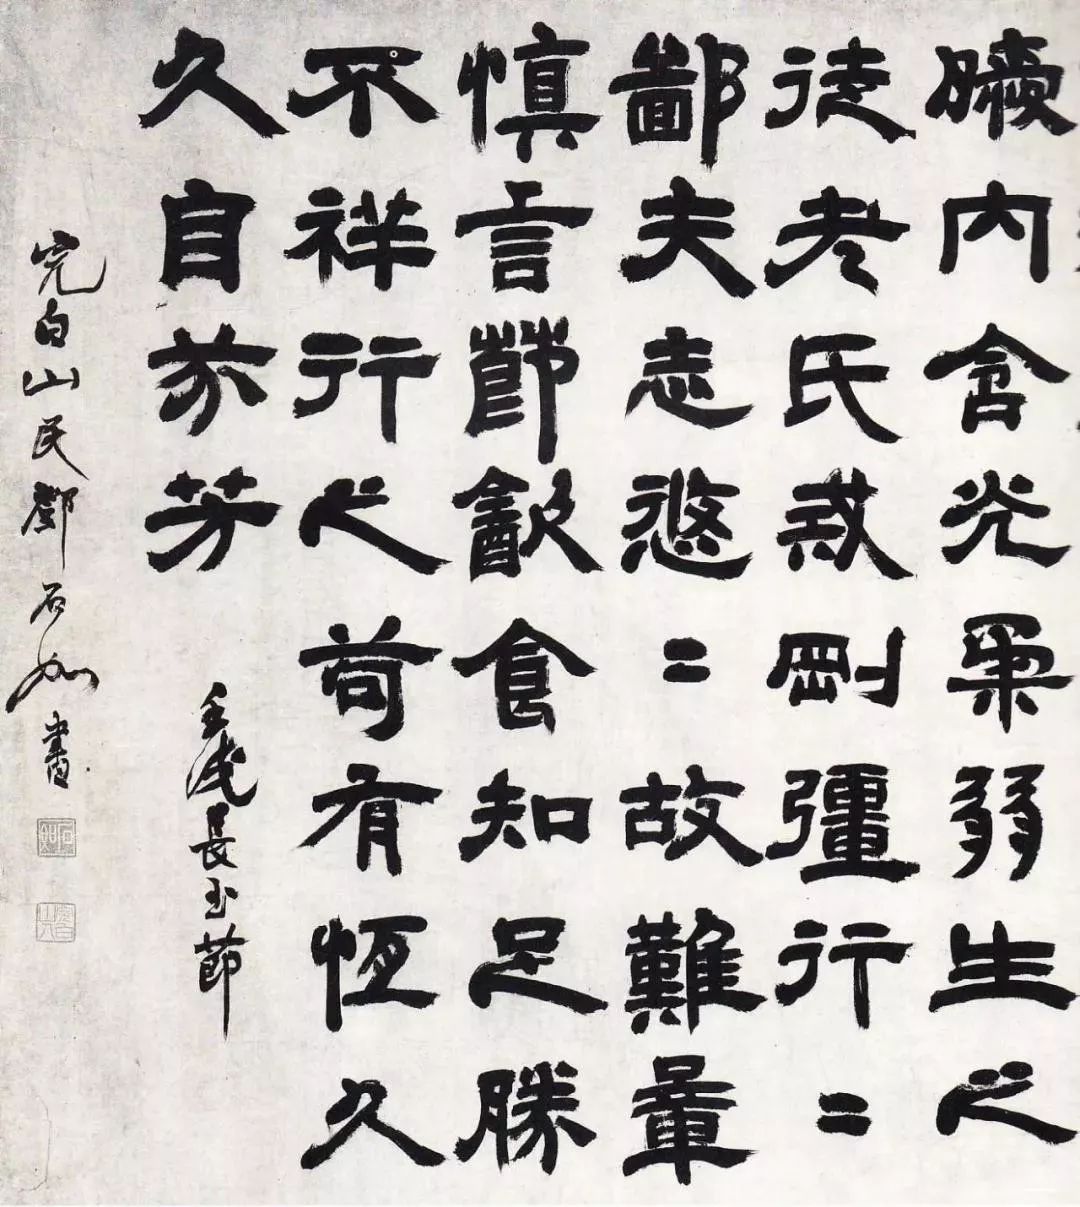 曖内含光柔弱生之
徒老氏戒剛彊行=
鄙夫志悠=故難量
慎言節飲食知足勝
不祥行之苟有恆久
久自芬芳
壬戌長至節
完白山民鄧石如書